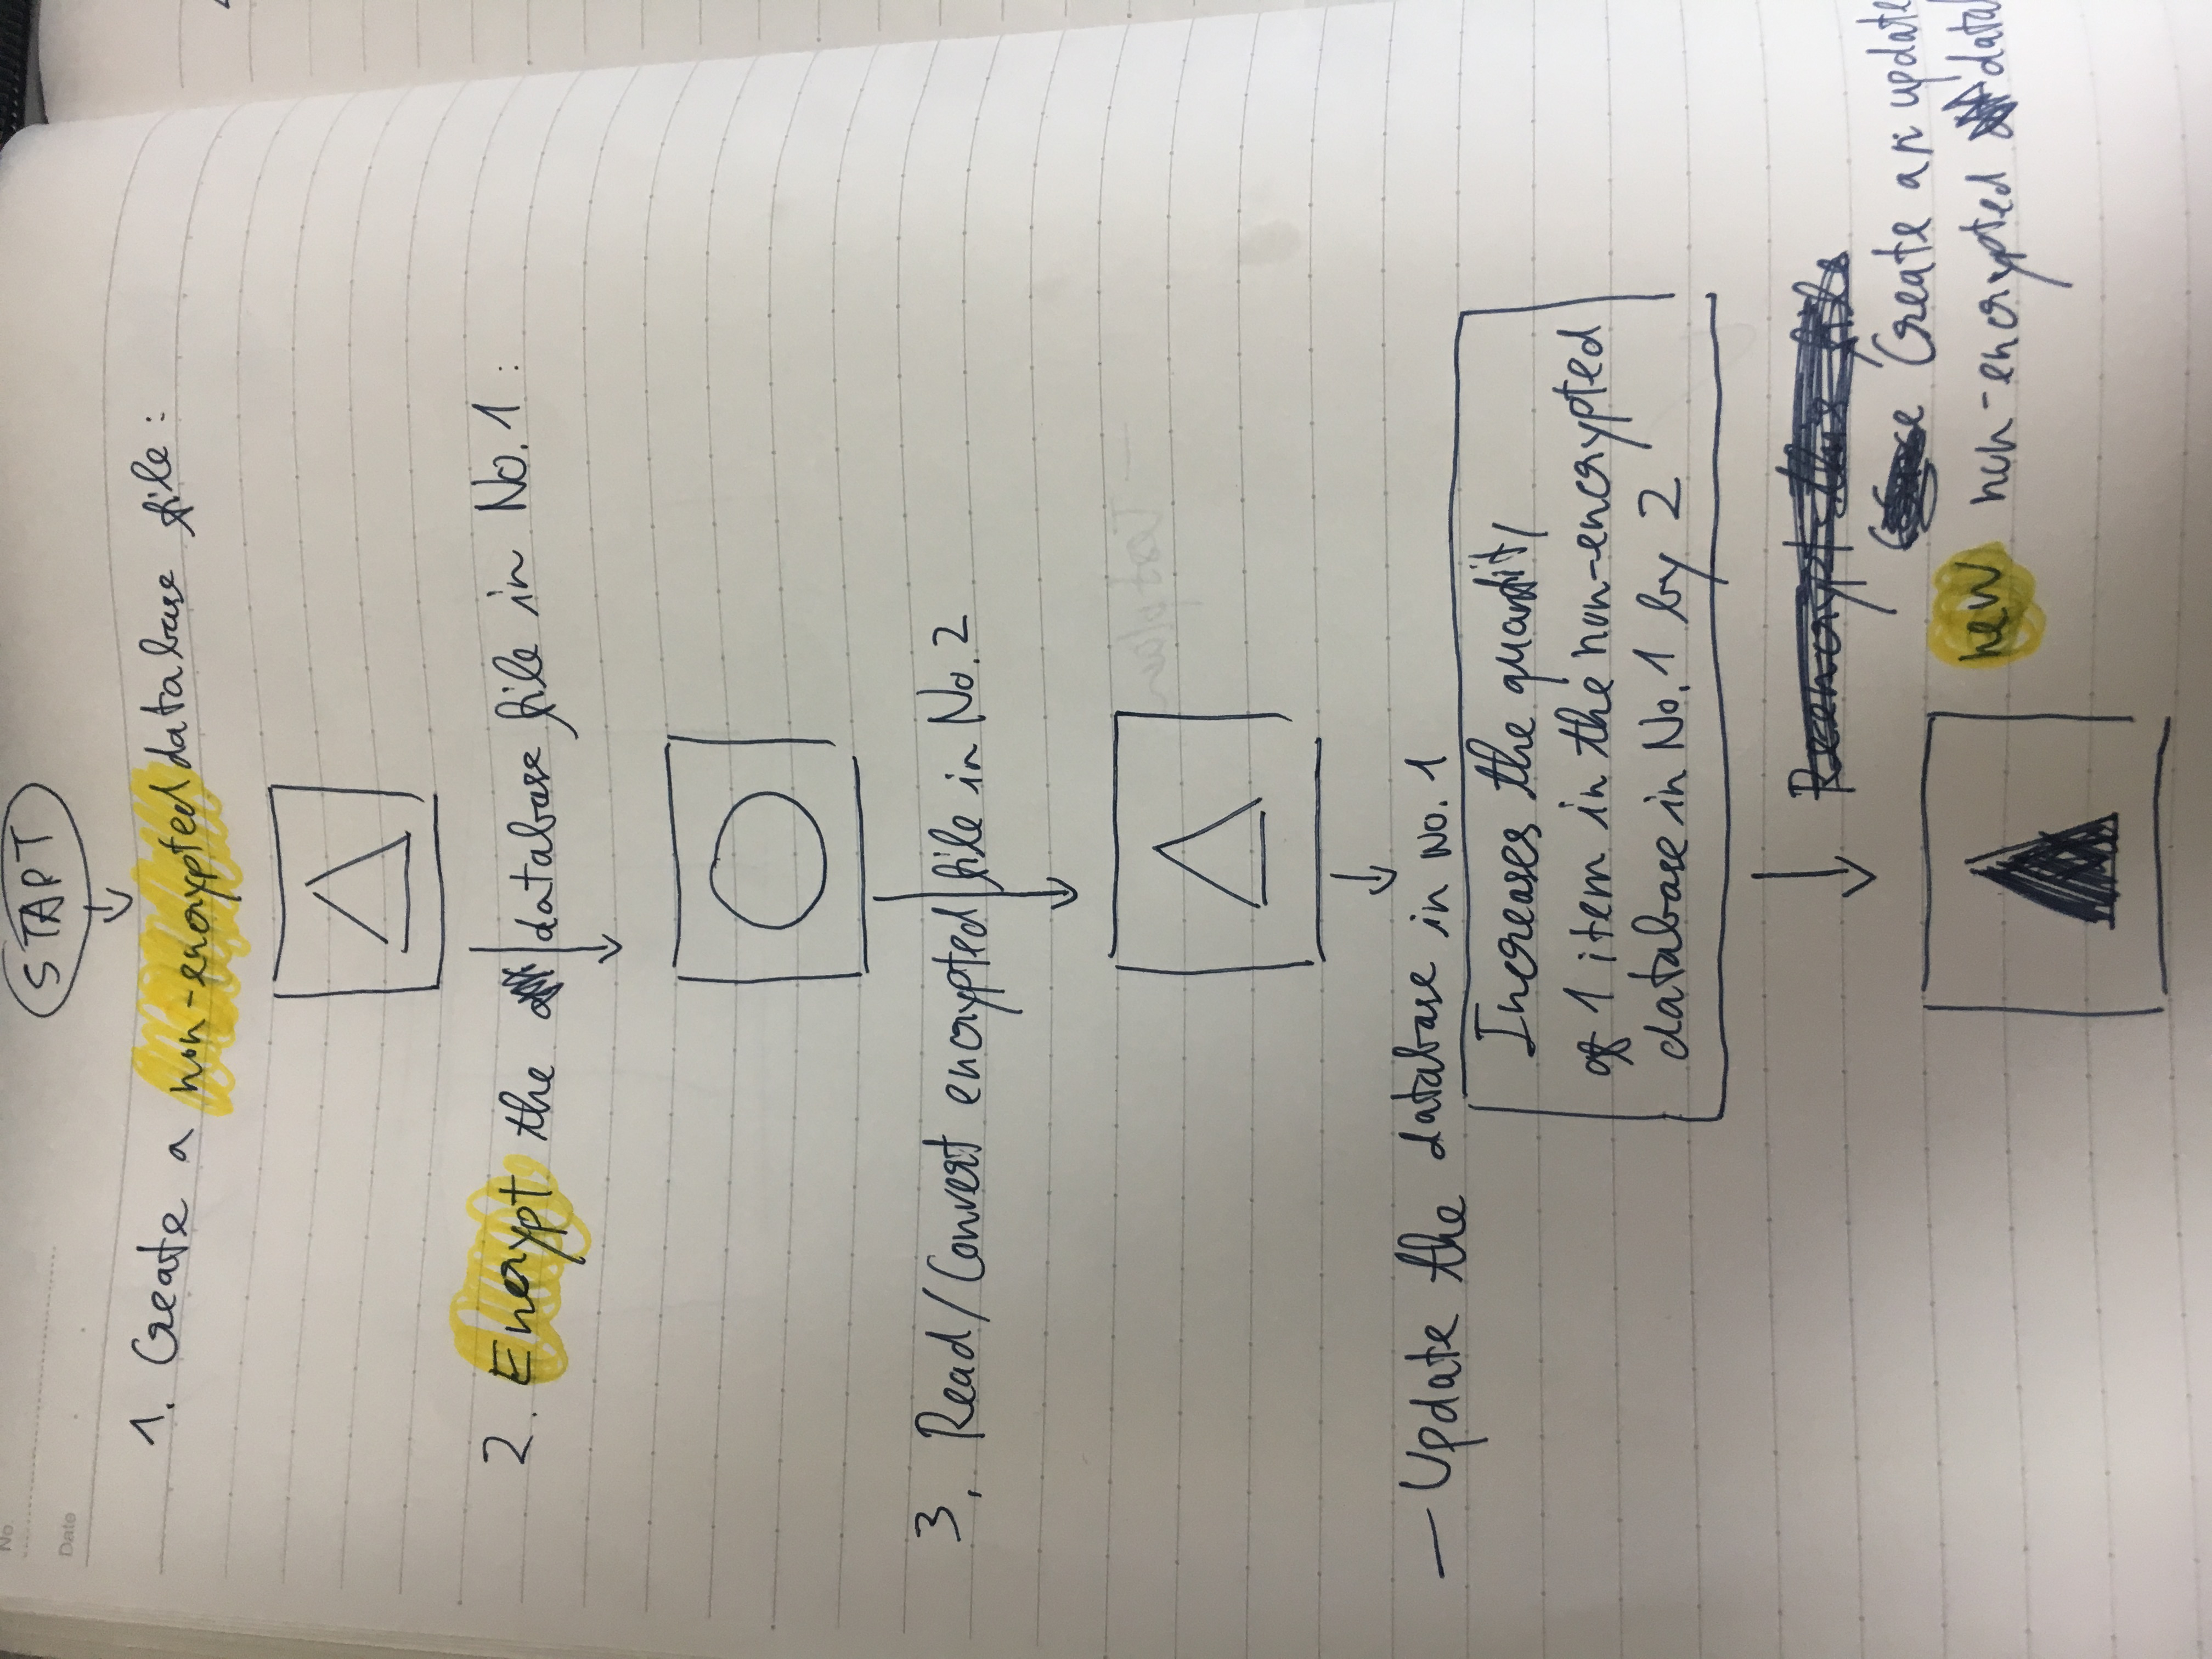 No.
Date
START
1. Create a non-encrypted database file:
2. Encrypt the database file in No. 1:
3. Read/Convert encrypted file in No. 2
- Update the database in No. 1
Increases the quantity
of 1 item in the non-encrypted
database in No. 1 by 2
Reencrypt this file
Create an update
new non-encrypted data